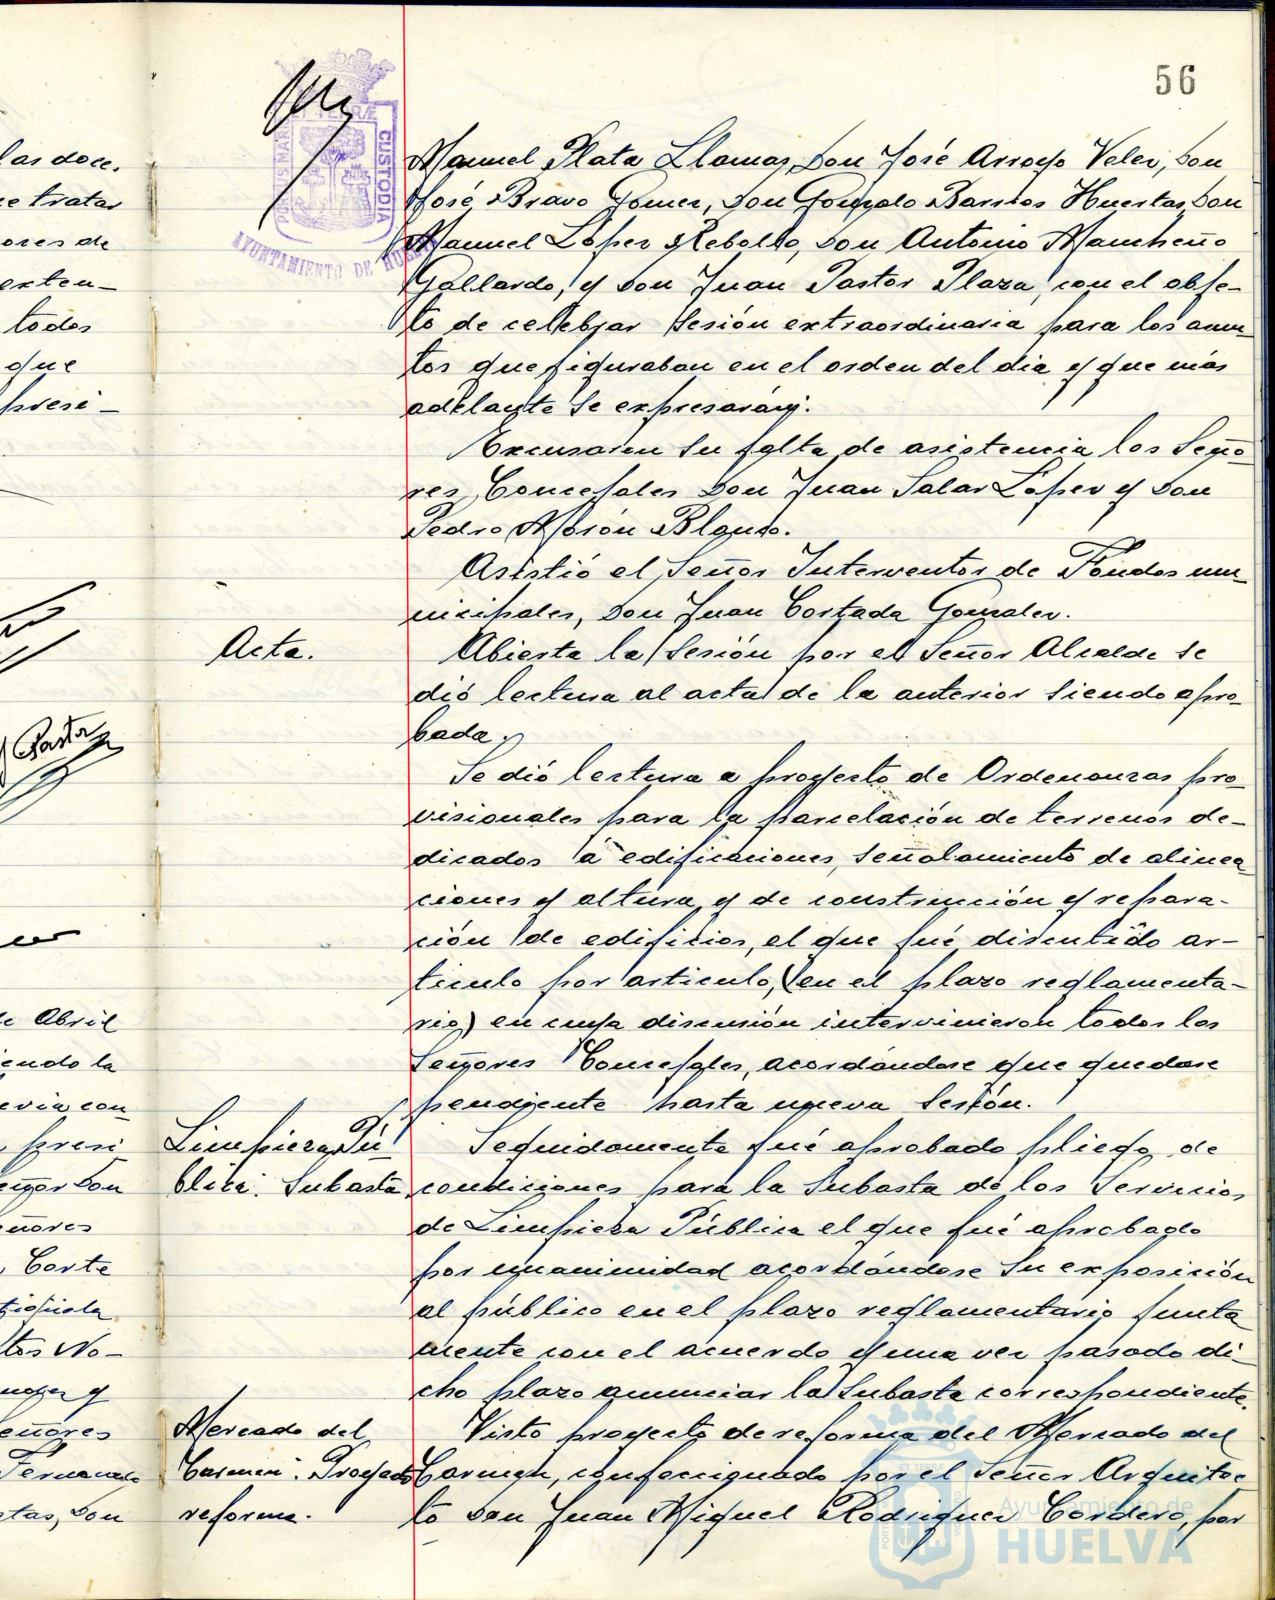 56
PORTUS MARIS ET TERRÆ CUSTODIA
AYUNTAMIENTO DE HUELVA
Manuel Plata Llamas, Don José Arroyo Velez, Don
José Bravo Gomez, Don Gonzalo Barrios Huertas, Don
Manuel López Rebollo, Don Antonio Mancheño
Gallardo, y Don Juan Pastor Plaza, con el obje-
to de celebrar sesión extraordinaria para los asun-
tos que figuraban en el orden del dia y que más
adelante se expresarán.
Excusaron su falta de asistencia los Seño-
res Concejales Don Juan Salas López y Don
Pedro Morón Blanco.
Asistió el Señor Interventor de Fondos mu-
nicipales, Don Juan Cortada Gonzalez.
Acta.
Abierta la Sesión por el Señor Alcalde se
dió lectura al acta de la anterior siendo apro-
bada.
Se dió lectura a proyecto de Ordenanzas pro-
visionales para la parcelación de terrenos de-
dicados a edificaciones, señalamiento de alinea
ciones y altura y de construcción y repara-
ción de edificios, el que fué discutido ar-
ticulo por articulo, (en el plazo reglamenta-
rio) en cuya discusión intervinieron todos los
Señores Concejales, acordándose que quedase
pendiente hasta nueva sesión.
Limpieza Pú-
blica. Subasta
Seguidamente fué aprobado pliego de
condiciones para la Subasta de los Servicios
de Limpieza Pública el que fué aprobado
por unanimidad acordándose su exposición
al público en el plazo reglamentario junta
mente con el acuerdo y una vez pasado di-
cho plazo anunciar la Subasta correspondiente.
Mercado del
Carmen. Proyecto
reforma.
Visto proyecto de reforma del Mercado del
Carmen, confeccionado por el Señor Arquitec
to Don Juan Miguel Rodriguez Cordero, por
las doce.
e tratar
ores de
exten-
todos
que
presi-
Pastor
de Abril
endo la
evia con
presi
Señor Don
eñores
Corte
tos No-
y
eñores
Fernando
tas, Don
Ayuntamiento de
HUELVA